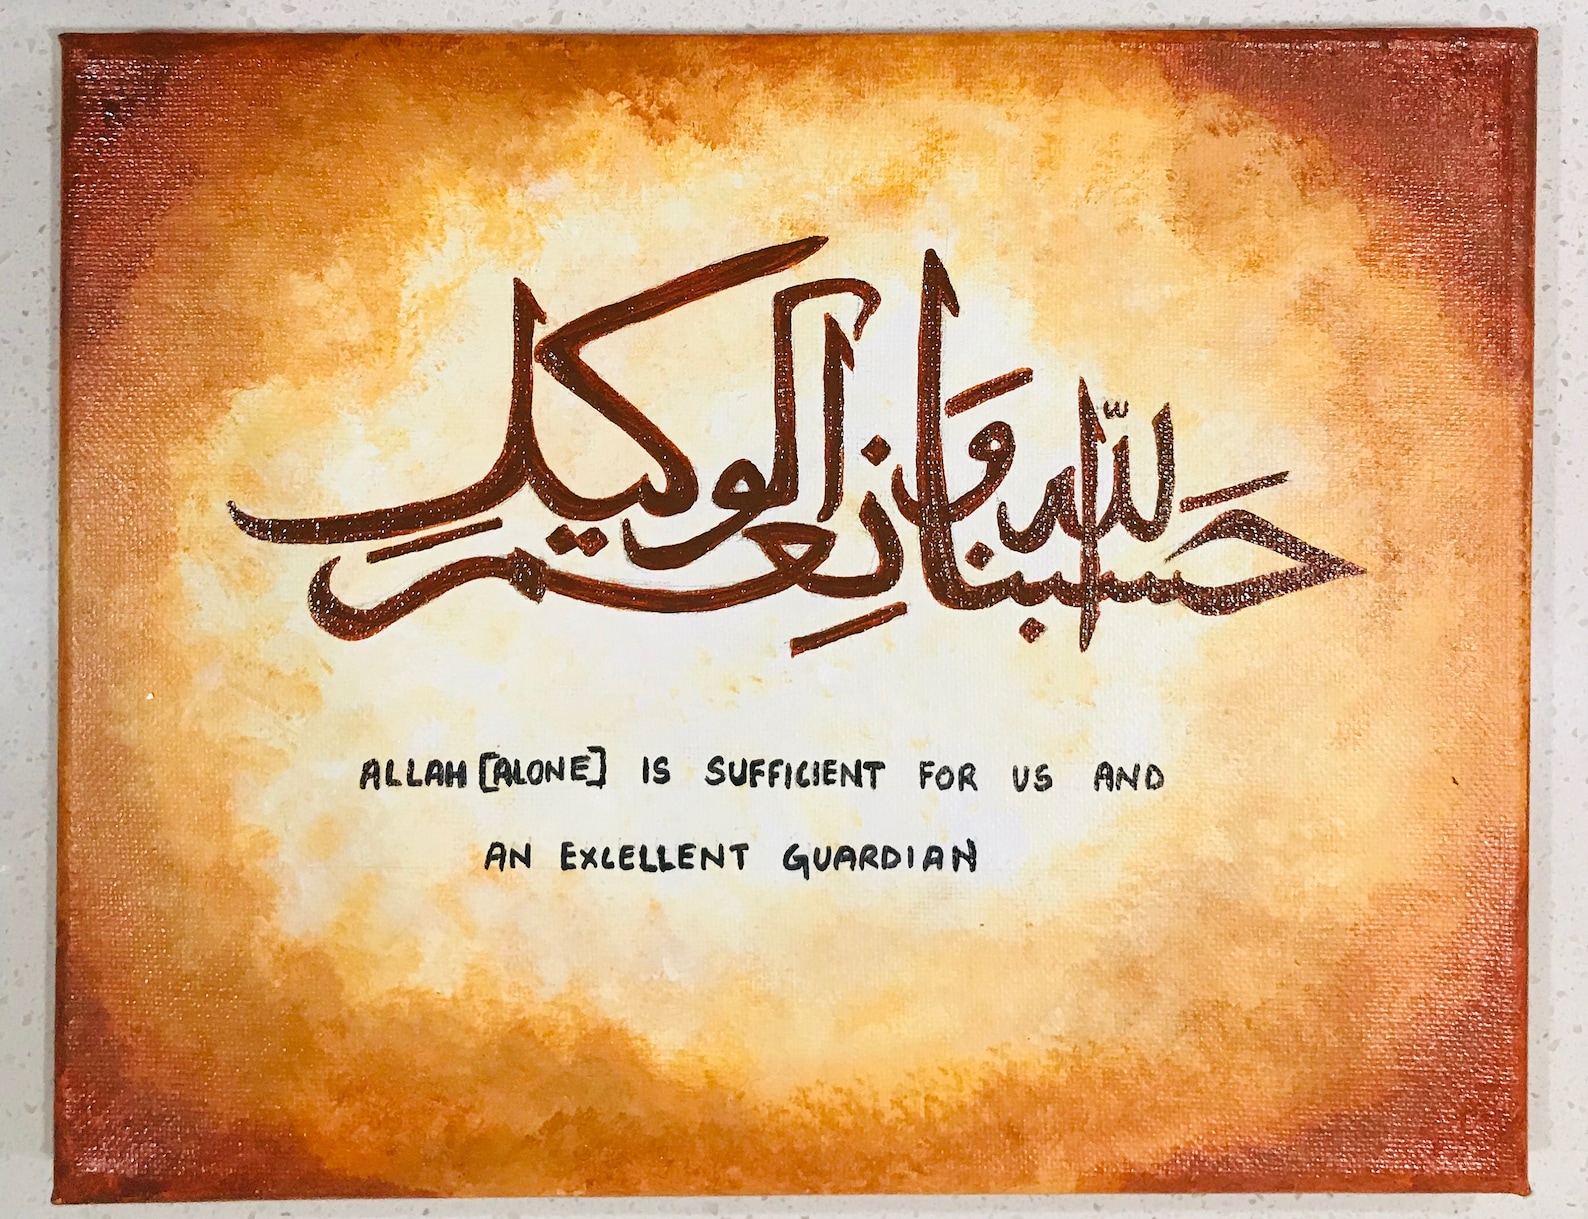 حسبنا الله و نعم الوكيل
ALLAH [ALONE] IS SUFFICIENT FOR US AND
AN EXCELLENT GUARDIAN